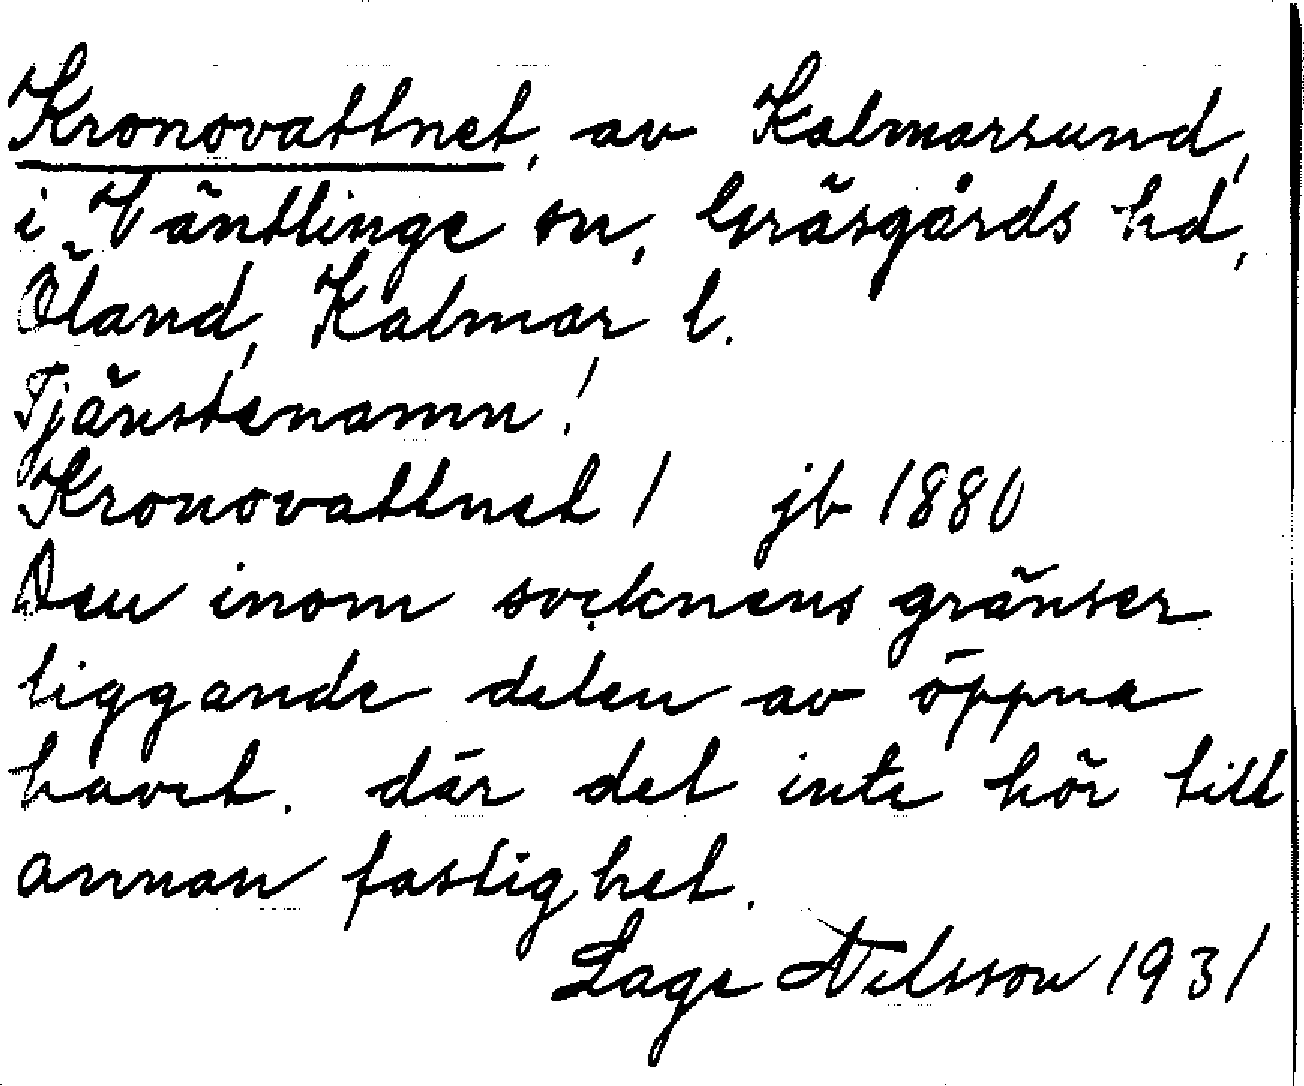 Kronovattnet, av Kalmarsund,
i Väntlinge sn, Gräsgårds hd,
Öland, Kalmar l.
Tjänstenamn!
Kronovattnet 1 jb 1880
Den inom socknens gränser
liggande delen av öppna
havet. där det inte hör till
annan fastighet.
Lage Nilsson 1931